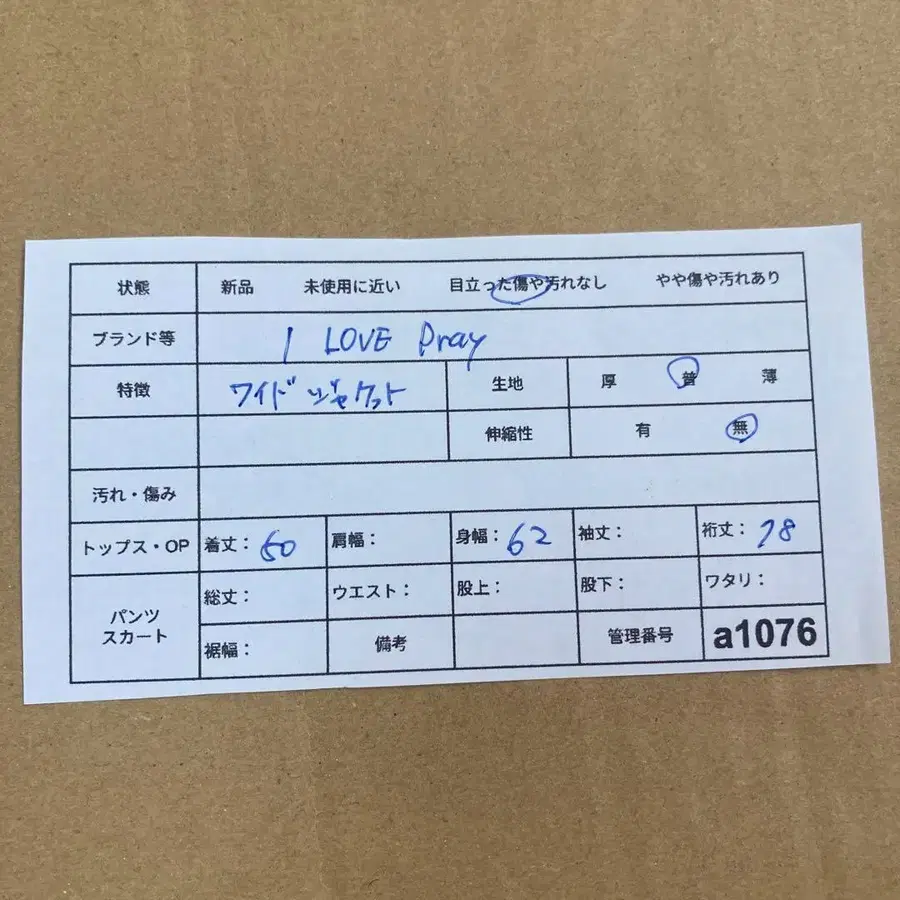 状態 新品 未使用に近い 目立った傷や汚れなし やや傷や汚れあり
ブランド等 I LOVE Pray
特徴 ワイドジャケット 生地 厚 普 薄
伸縮性 有 無
汚れ・傷み
トップス・OP 着丈: 50 肩幅: 身幅: 62 袖丈: 裄丈: 78
パンツ スカート 総丈: ウエスト: 股上: 股下: ワタリ:
裾幅: 備考 管理番号 a1076